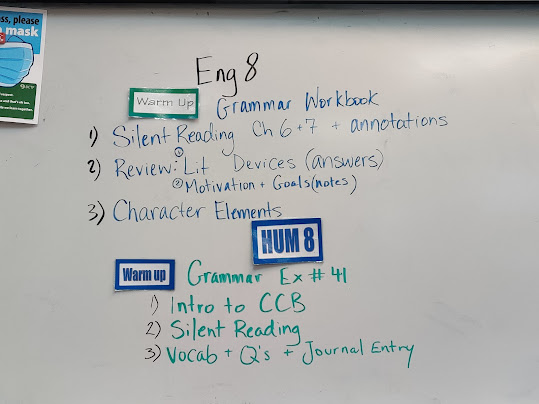 ss, please
mask
Eng 8
Warm Up Grammar Workbook
1) Silent Reading Ch 6+7 + annotations
2) Review: ① Lit Devices (answers)
② Motivation + Goals (notes)
3) Character Elements
HUM 8
Warm up Grammar Ex # 41
1) Intro to CCB
2) Silent Reading
3) Vocab + Q's + Journal Entry